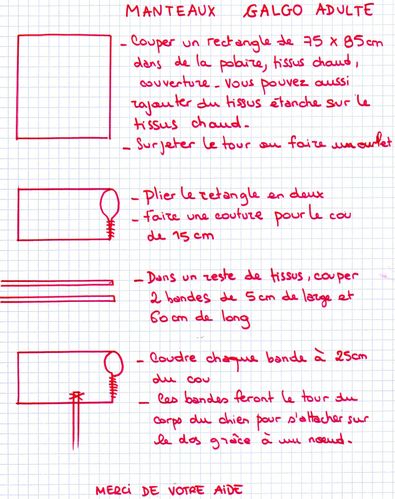 MANTEAUX GALGO ADULTE
- Couper un rectangle de 75 x 85cm
dans de la polaire, tissus chaud,
couverture - Vous pouvez aussi
rajouter du tissus étanche sur le
tissus chaud.
- Surjeter le tour ou faire un ourlet
- Plier le rectangle en deux
- faire une couture pour le cou
de 15 cm
- Dans un reste de tissus, couper
2 bandes de 5 cm de large et
60 cm de long
- Coudre chaque bande à 25cm
du cou
- Ces bandes feront le tour du
corps du chien pour s'attacher sur
le dos grâce à un nœud.
MERCI DE VOTRE AIDE